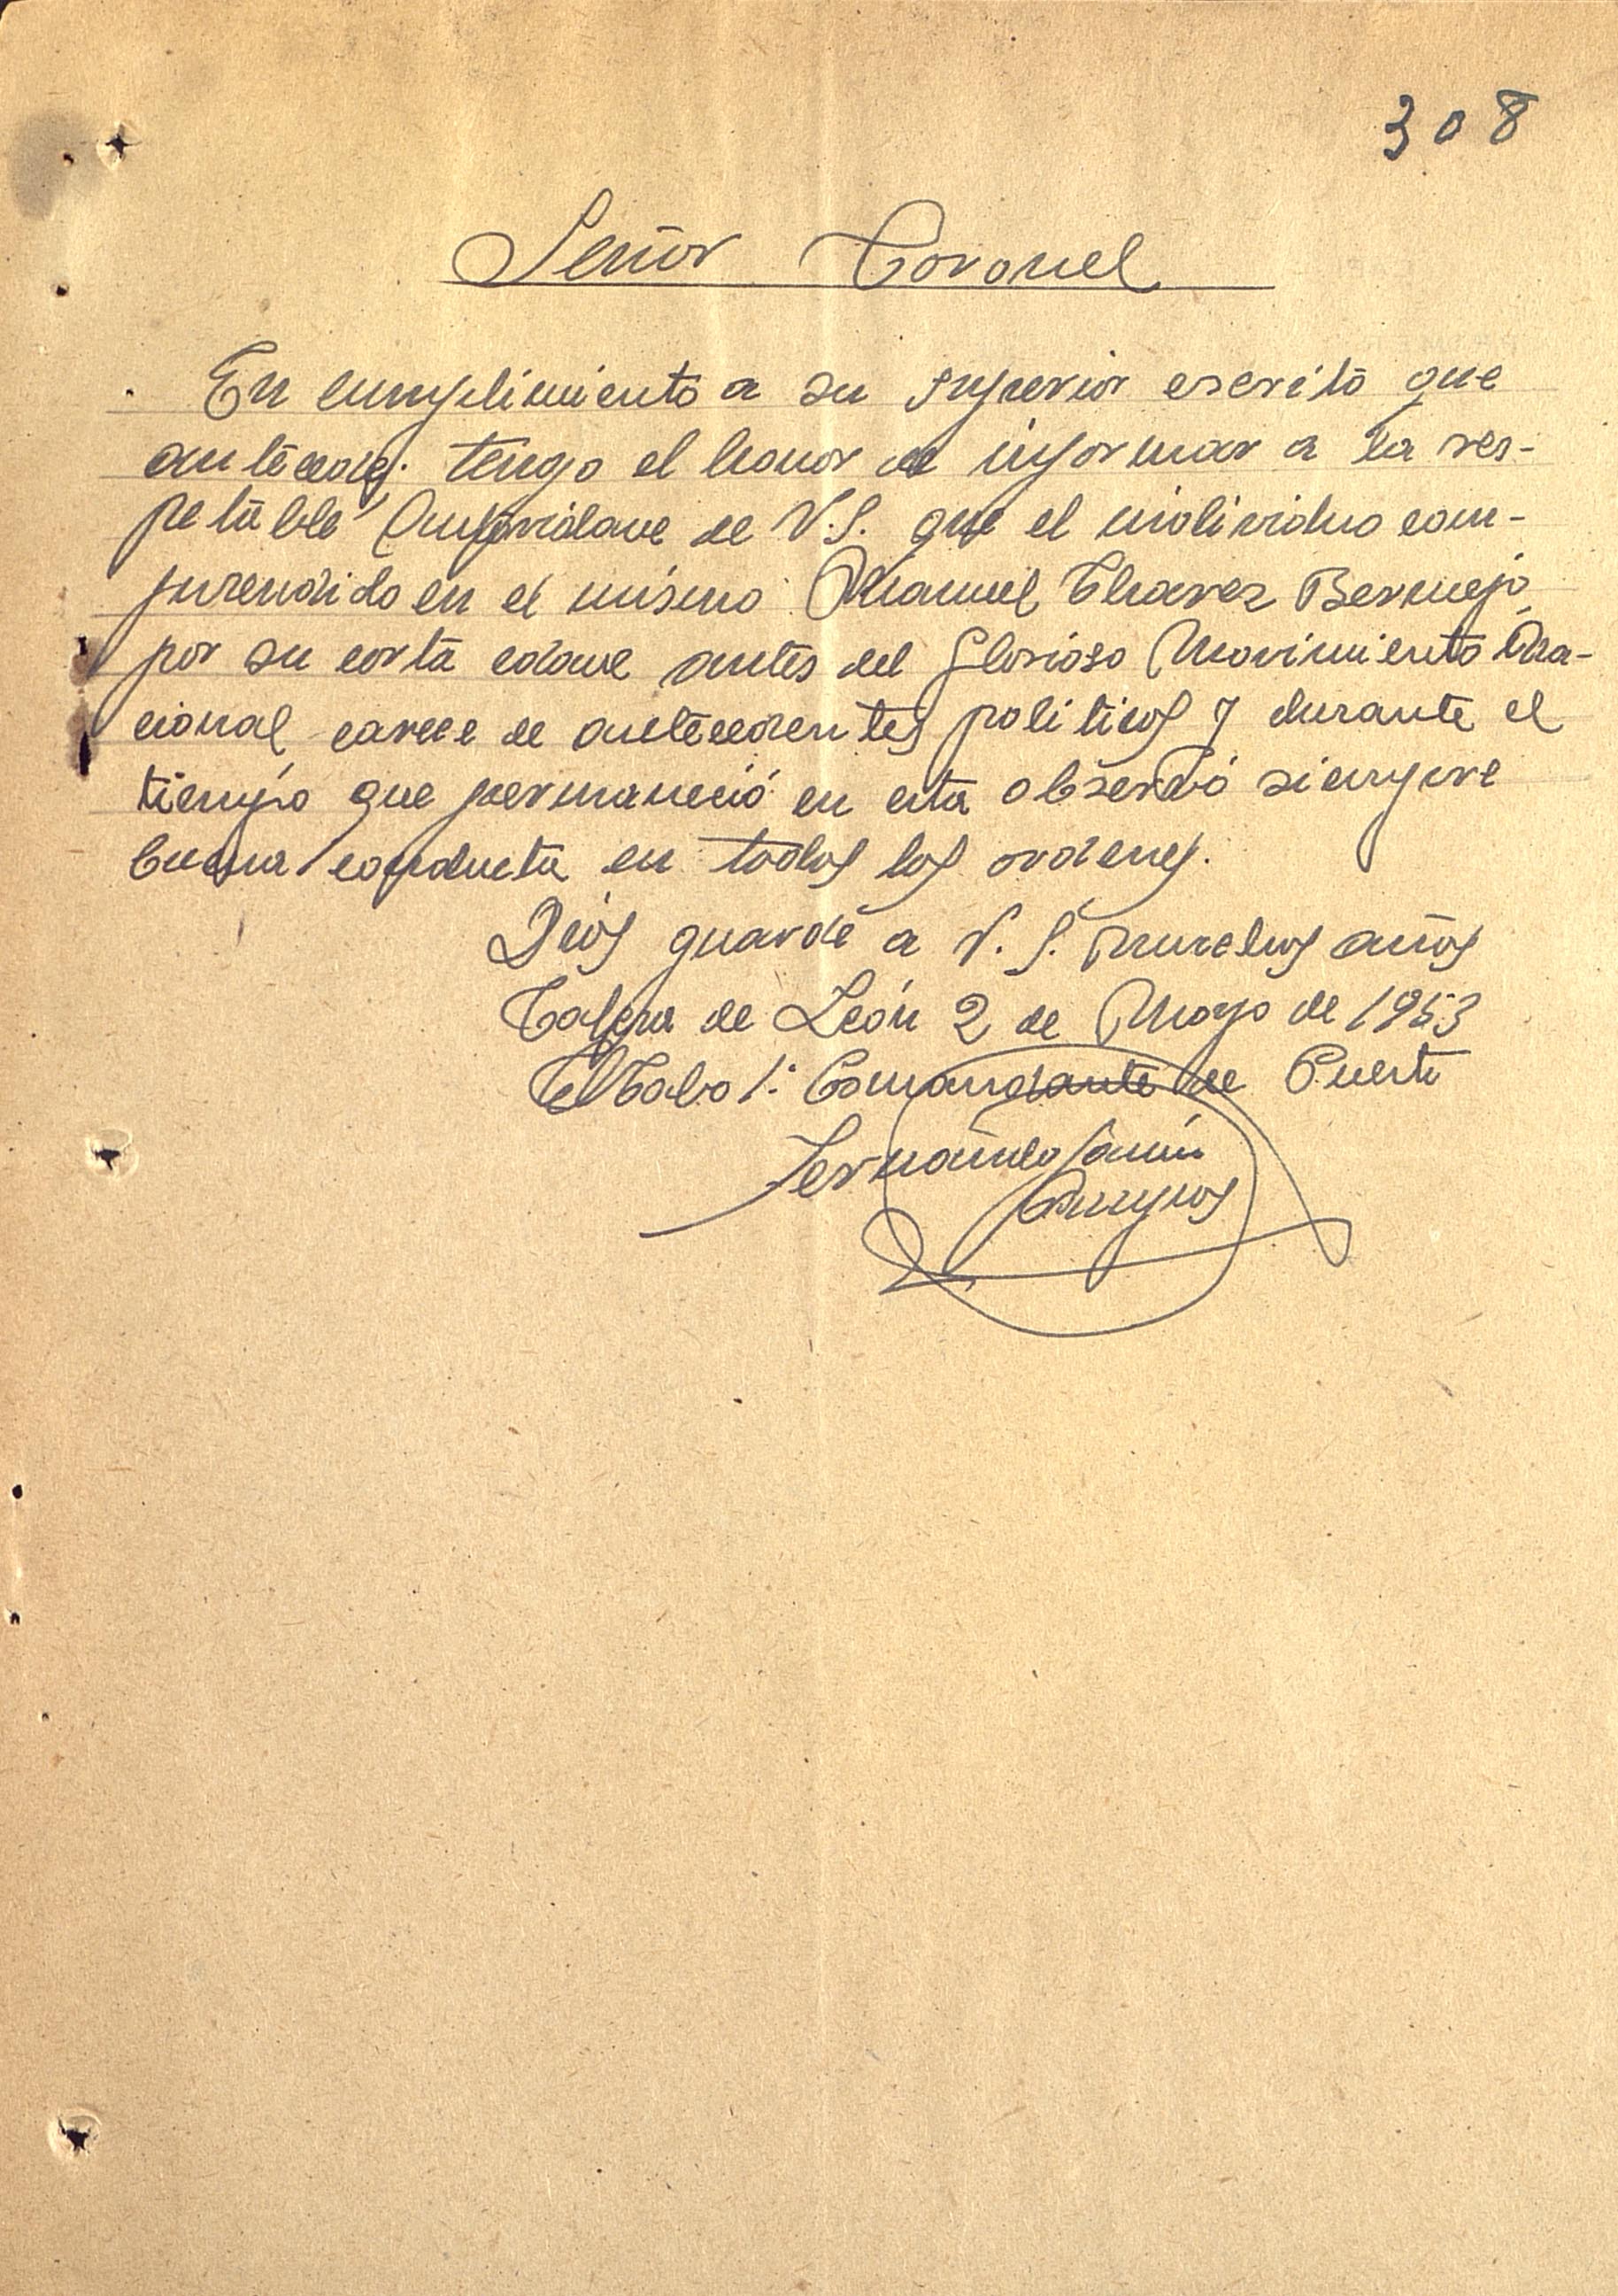 308
Señor Coronel
En cumplimiento a su superior escrito que
antecede; tengo el honor de informar a la res-
petable Autoridad de V.S. que el individuo com-
prendido en el mismo Manuel Chavez Bermejo,
por su corta edad antes del Glorioso Movimiento Na-
cional carece de antecedentes politicos y durante el
tiempo que permaneció en esta observó siempre
buena conducta en todos los ordenes.
Dios guarde a V. S. muchos años
de León 2 de Mayo de 1953
El Cabo 1º Comandante de Puesto
Fernando